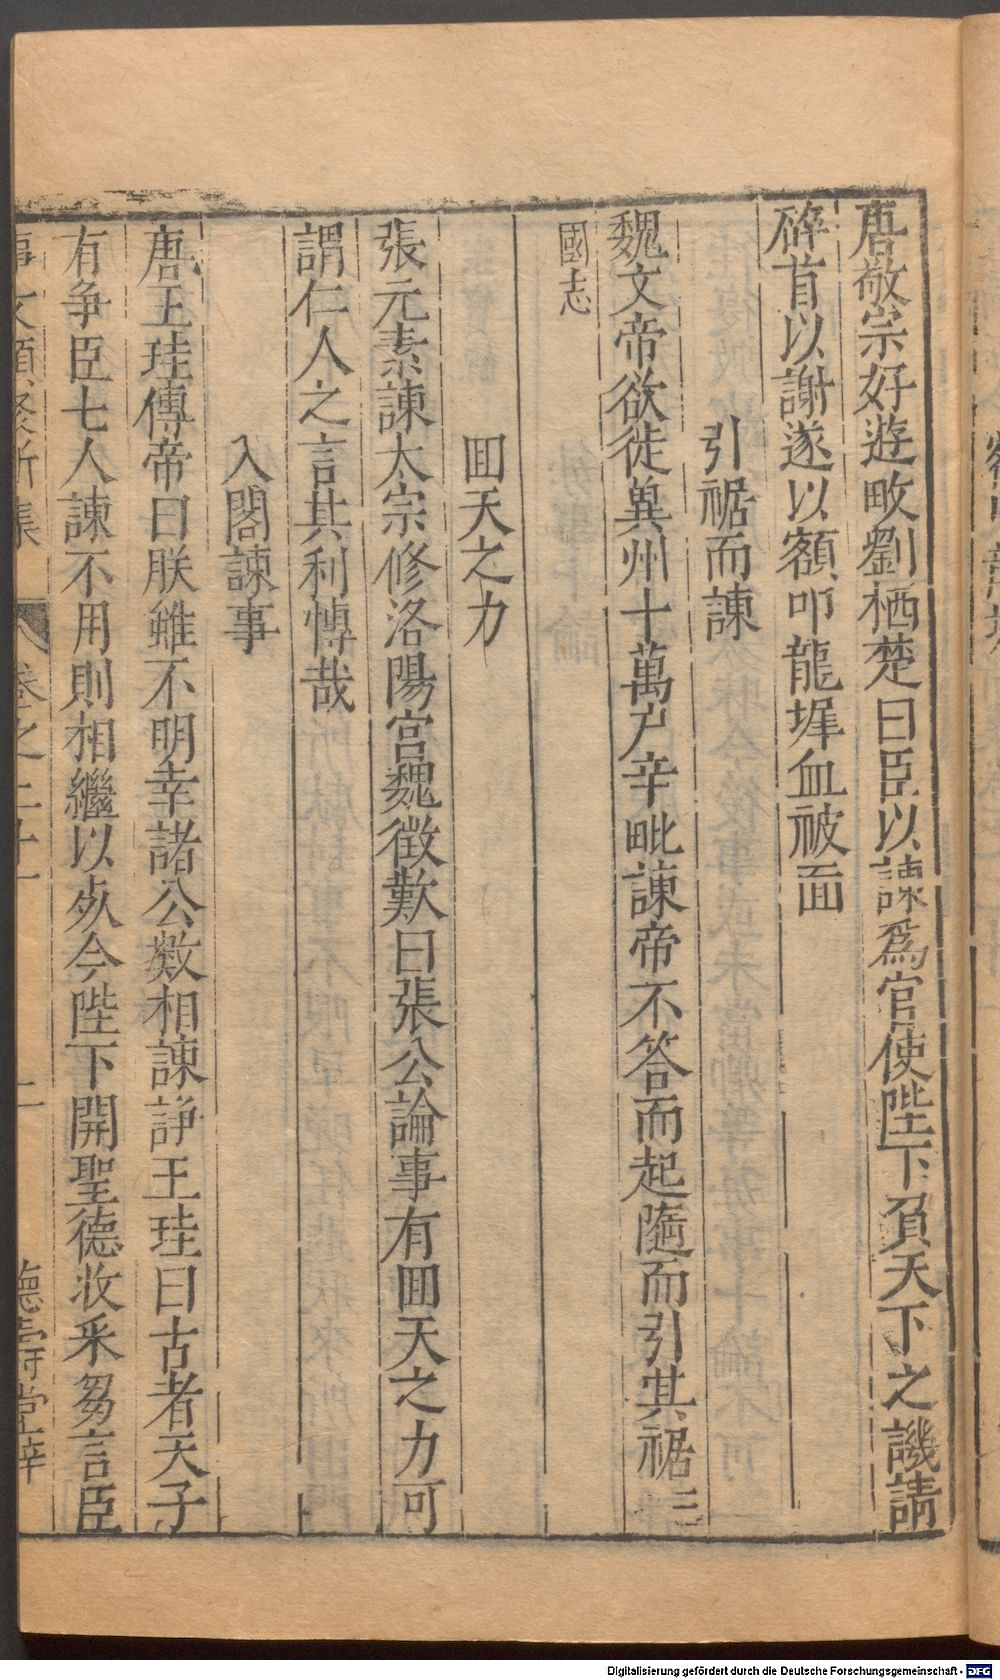 唐敬宗好遊畋劉栖楚曰臣以諫爲官使陛下負天下之譏請
碎首以謝遂以額叩龍墀血被面
引裾而諫
魏文帝欲徙兾州十萬户辛毗諫帝不答而起隨而引其裾三
國志
囬天之力
張元素諫太宗修洛陽宮魏徴歎曰張公論事有囬天之力可
謂仁人之言其利愽哉
入閣諫事
唐王珪傳帝曰朕雖不明幸諸公數相諫諍王珪曰古者天子
有争臣七人諫不用則相繼以㱠今陛下開聖德收采芻言臣
事文類聚新集 卷之二十一 二 德壽堂梓
Digitalisierung gefördert durch die Deutsche Forschungsgemeinschaft - DFG